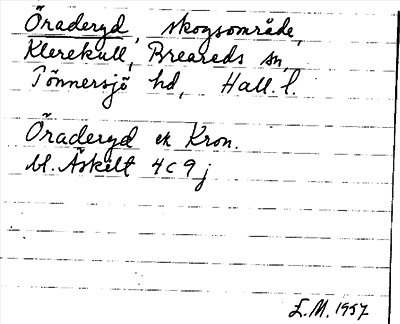 Öraderyd, skogsområde,
Klerekull, Breareds sn,
Tönnersjö hd, Hall. l.
Öraderyd ek Kron.
bl. Äskilt 4 C 9 j
L.M. 1957